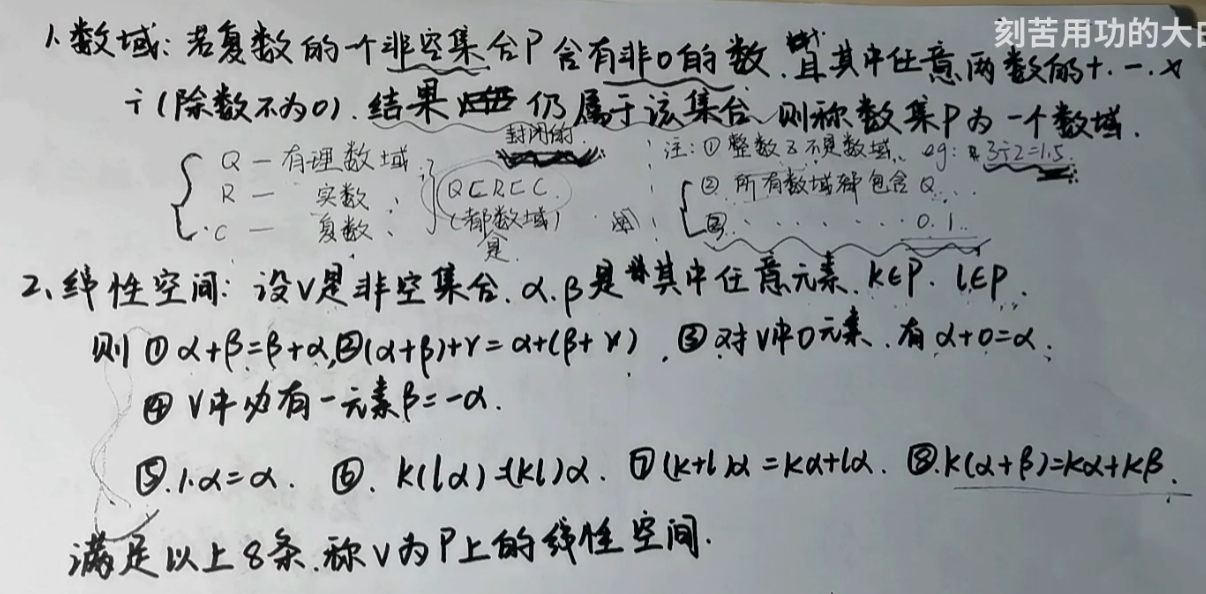 刻苦用功的大白
1、数域:若复数的一个非空集合P含有非0的数、且其中任意两数的+.-.×
÷(除数不为0).结果仍属于该集合、则称数集P为一个数域.
封闭的
Q — 有理数域
R — 实数、
C — 复数、
Q⊆R⊆C.
(都数域)
是
注:①整数Z不是数域、eg: 3÷2=1.5.
②所有数域都包含Q...
③......0.1..
2、线性空间:设V是非空集合.α.β是其中任意元素.k∈P. l∈P.
则①α+β=β+α,②(α+β)+γ=α+(β+γ),③对V中0元素.有α+0=α;
④V中必有一元素β=-α.
⑤.1.α=α. ⑥. k(lα)=(kl)α. ⑦(k+l)α=kα+lα. ⑧.k(α+β)=kα+kβ.
满足以上8条.称V为P上的线性空间.